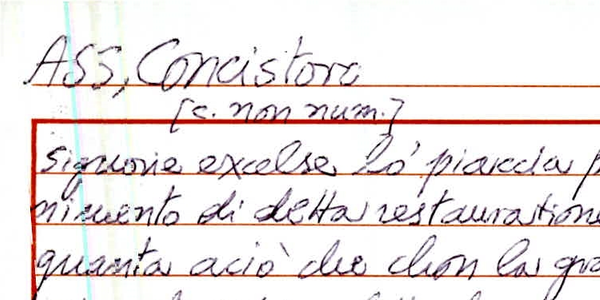 ASS, Concistoro
[c. non num.]
signorie excelse lo' piaccia p
nimento di detta restauratione
quanta aciò che chon la gra